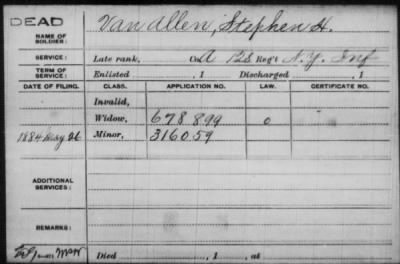 DEAD
NAME OF SOLDIER: Van Allen, Stephen H.
SERVICE: Late rank, Co. A 128 Reg't N.Y. Inf
TERM OF SERVICE: Enlisted , 1 Discharged , 1
DATE OF FILING. CLASS. APPLICATION NO. LAW. CERTIFICATE NO.
Invalid,
Widow, 678 899 0
1884 May 26 Minor, 316059
ADDITIONAL SERVICES:
REMARKS:
Died , 1 , at